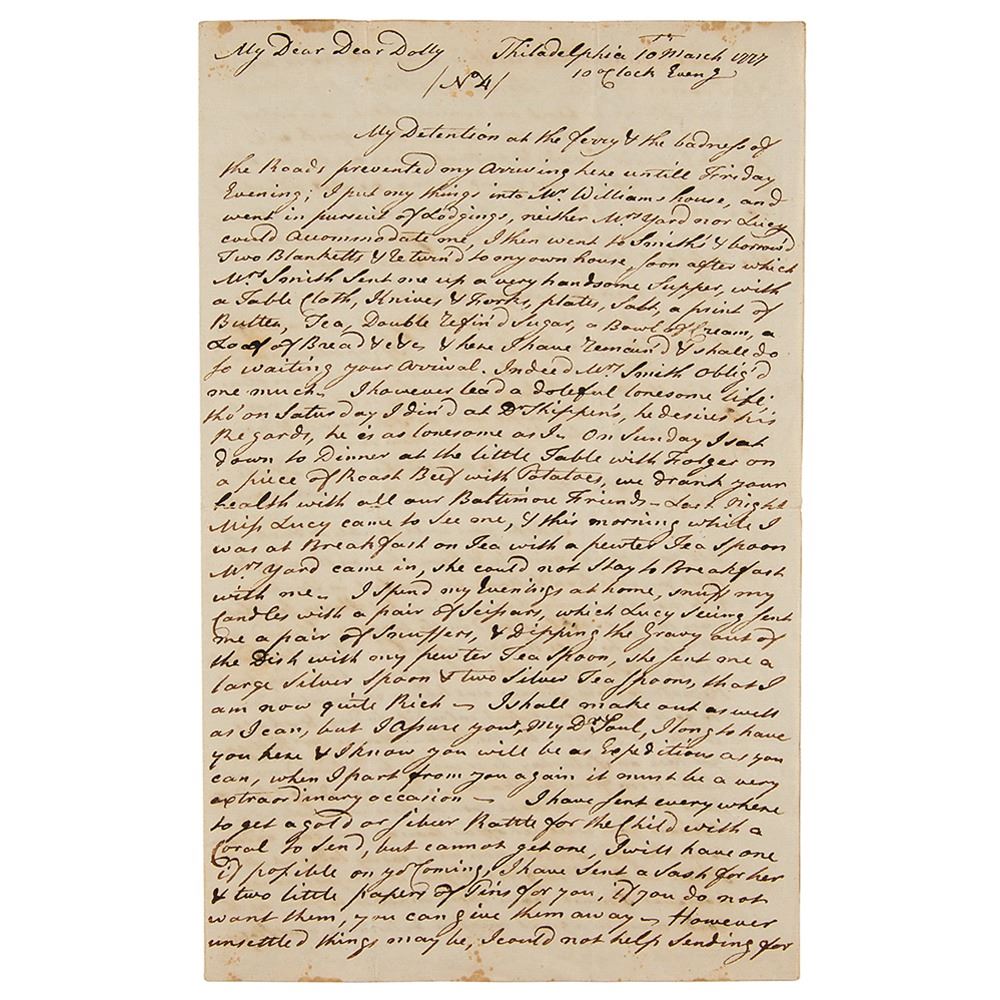 My Dear Dear Dolly Philadelphia 10th March 1777
/No 4/ 10 oClock Eveng
My Detention at the ferry & the badness of
the Roads prevented my Arriving here untill Friday
Evening; I put my things into Mr. Williams house, and
went in pursuit of Lodgings, neither Mrs Yard nor Lucy
could Accommodate me, I then went to Smith's & borrow'd
Two Blanketts & Return'd to my own house soon after which
Mrs Smith Sent me up a very handsome Supper, with
a Table Cloth, Knives & Forks, plates, Salt, a print of
Butter, Tea, Double refin'd Sugar, a Bowl of Cream, a
Loaf of Bread &c &c & here I have remain'd & shall do
so waiting your Arrival. Indeed Mrs Smith oblig'd
me much. I however lead a doleful lonesome life;
tho' on Saturday I din'd at Dr Shippen's, he desires his
Regards, he is as lonesome as I. On Sunday I sat
down to Dinner at the little Table with Folger on
a piece of Roast Beef with Potatoes, we drank your
health with all our Baltimore Friends - Last Night
Miss Lucy came to see me, & this morning while I
was at Breakfast on Tea with a pewter Tea Spoon
Mrs Yard came in, she could not Stay to Breakfast
with me. I spend my Evenings at home, snuff my
Candles with a pair of Scissars, which Lucy seeing sent
me a pair of Snuffers, & dipping the Gravy out of
the Dish with my pewter Tea Spoon, she sent me a
large Silver Spoon & two Silver Tea Spoons, that I
am now quite Rich - I shall make out as well
as I can, but I Assure you, My Dr Soul, I long to have
you here & I know you will be as Expeditious as you
can, when I part from you again it must be a very
extraordinary occasion - I have sent every where
to get a gold or silver Rattle for the Child with a
Coral to Send, but cannot get one, I will have one
if possible on yr Coming, I have Sent a Sash for her
& two little papers of Pins for you, if you do not
want them, you can give them away - However
unsettled things may be, I could not help Sending for